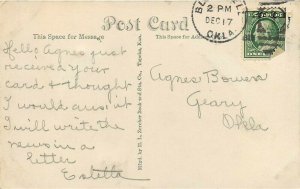 Post Card
This Space for Message
This Space for Address
2 PM
DEC 17
OKLA.
Hello Agnes just
received your
card & thought
I would ans. it
I will write the
news in a
letter
Estella
Agnes Bowers
Geary
Okla